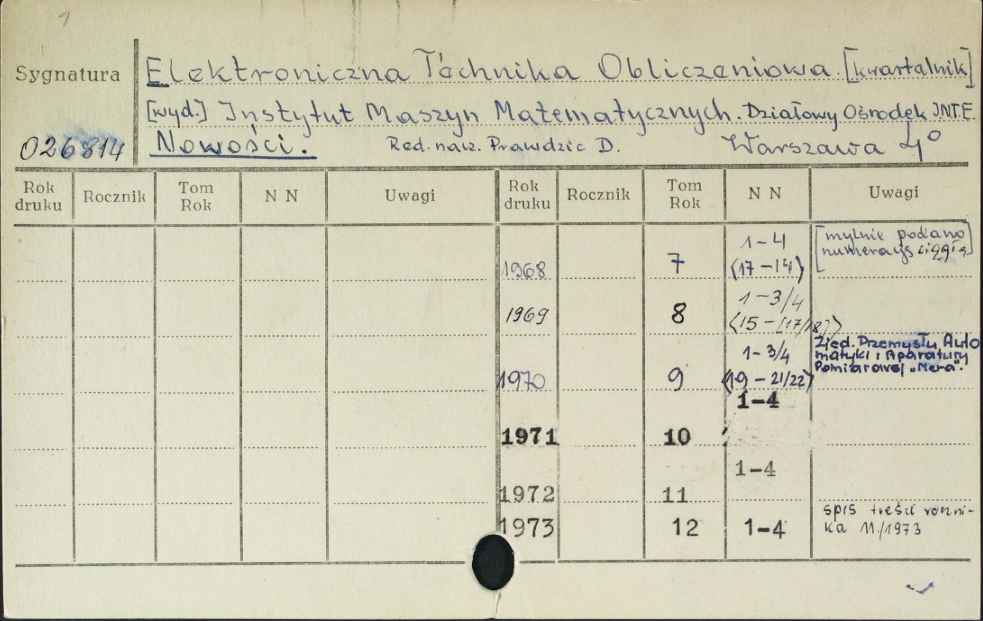 1
Sygnatura
Elektroniczna Technika Obliczeniowa. [kwartalnik]
[wyd.] Instytut Maszyn Matematycznych. Działowy Ośrodek INTE.
026814 Nowości. Red. nacz. Prawdzic D. Warszawa 4°
Rok druku Rocznik Tom Rok N N Uwagi Rok druku Rocznik Tom Rok N N Uwagi
1968 7 1-4 (17-14) [mylnie podano
1969 8 1-3/4 (15-[17/18])
1970 9 1-3/4 (19-21/22) Zjed. Przemysłu Auto
matyki i Aparatury
Pomiarowej "Mera".
1971 10 1-4
1972 11 1-4
1973 12 1-4 spis treści roczni-
ka 11/1973